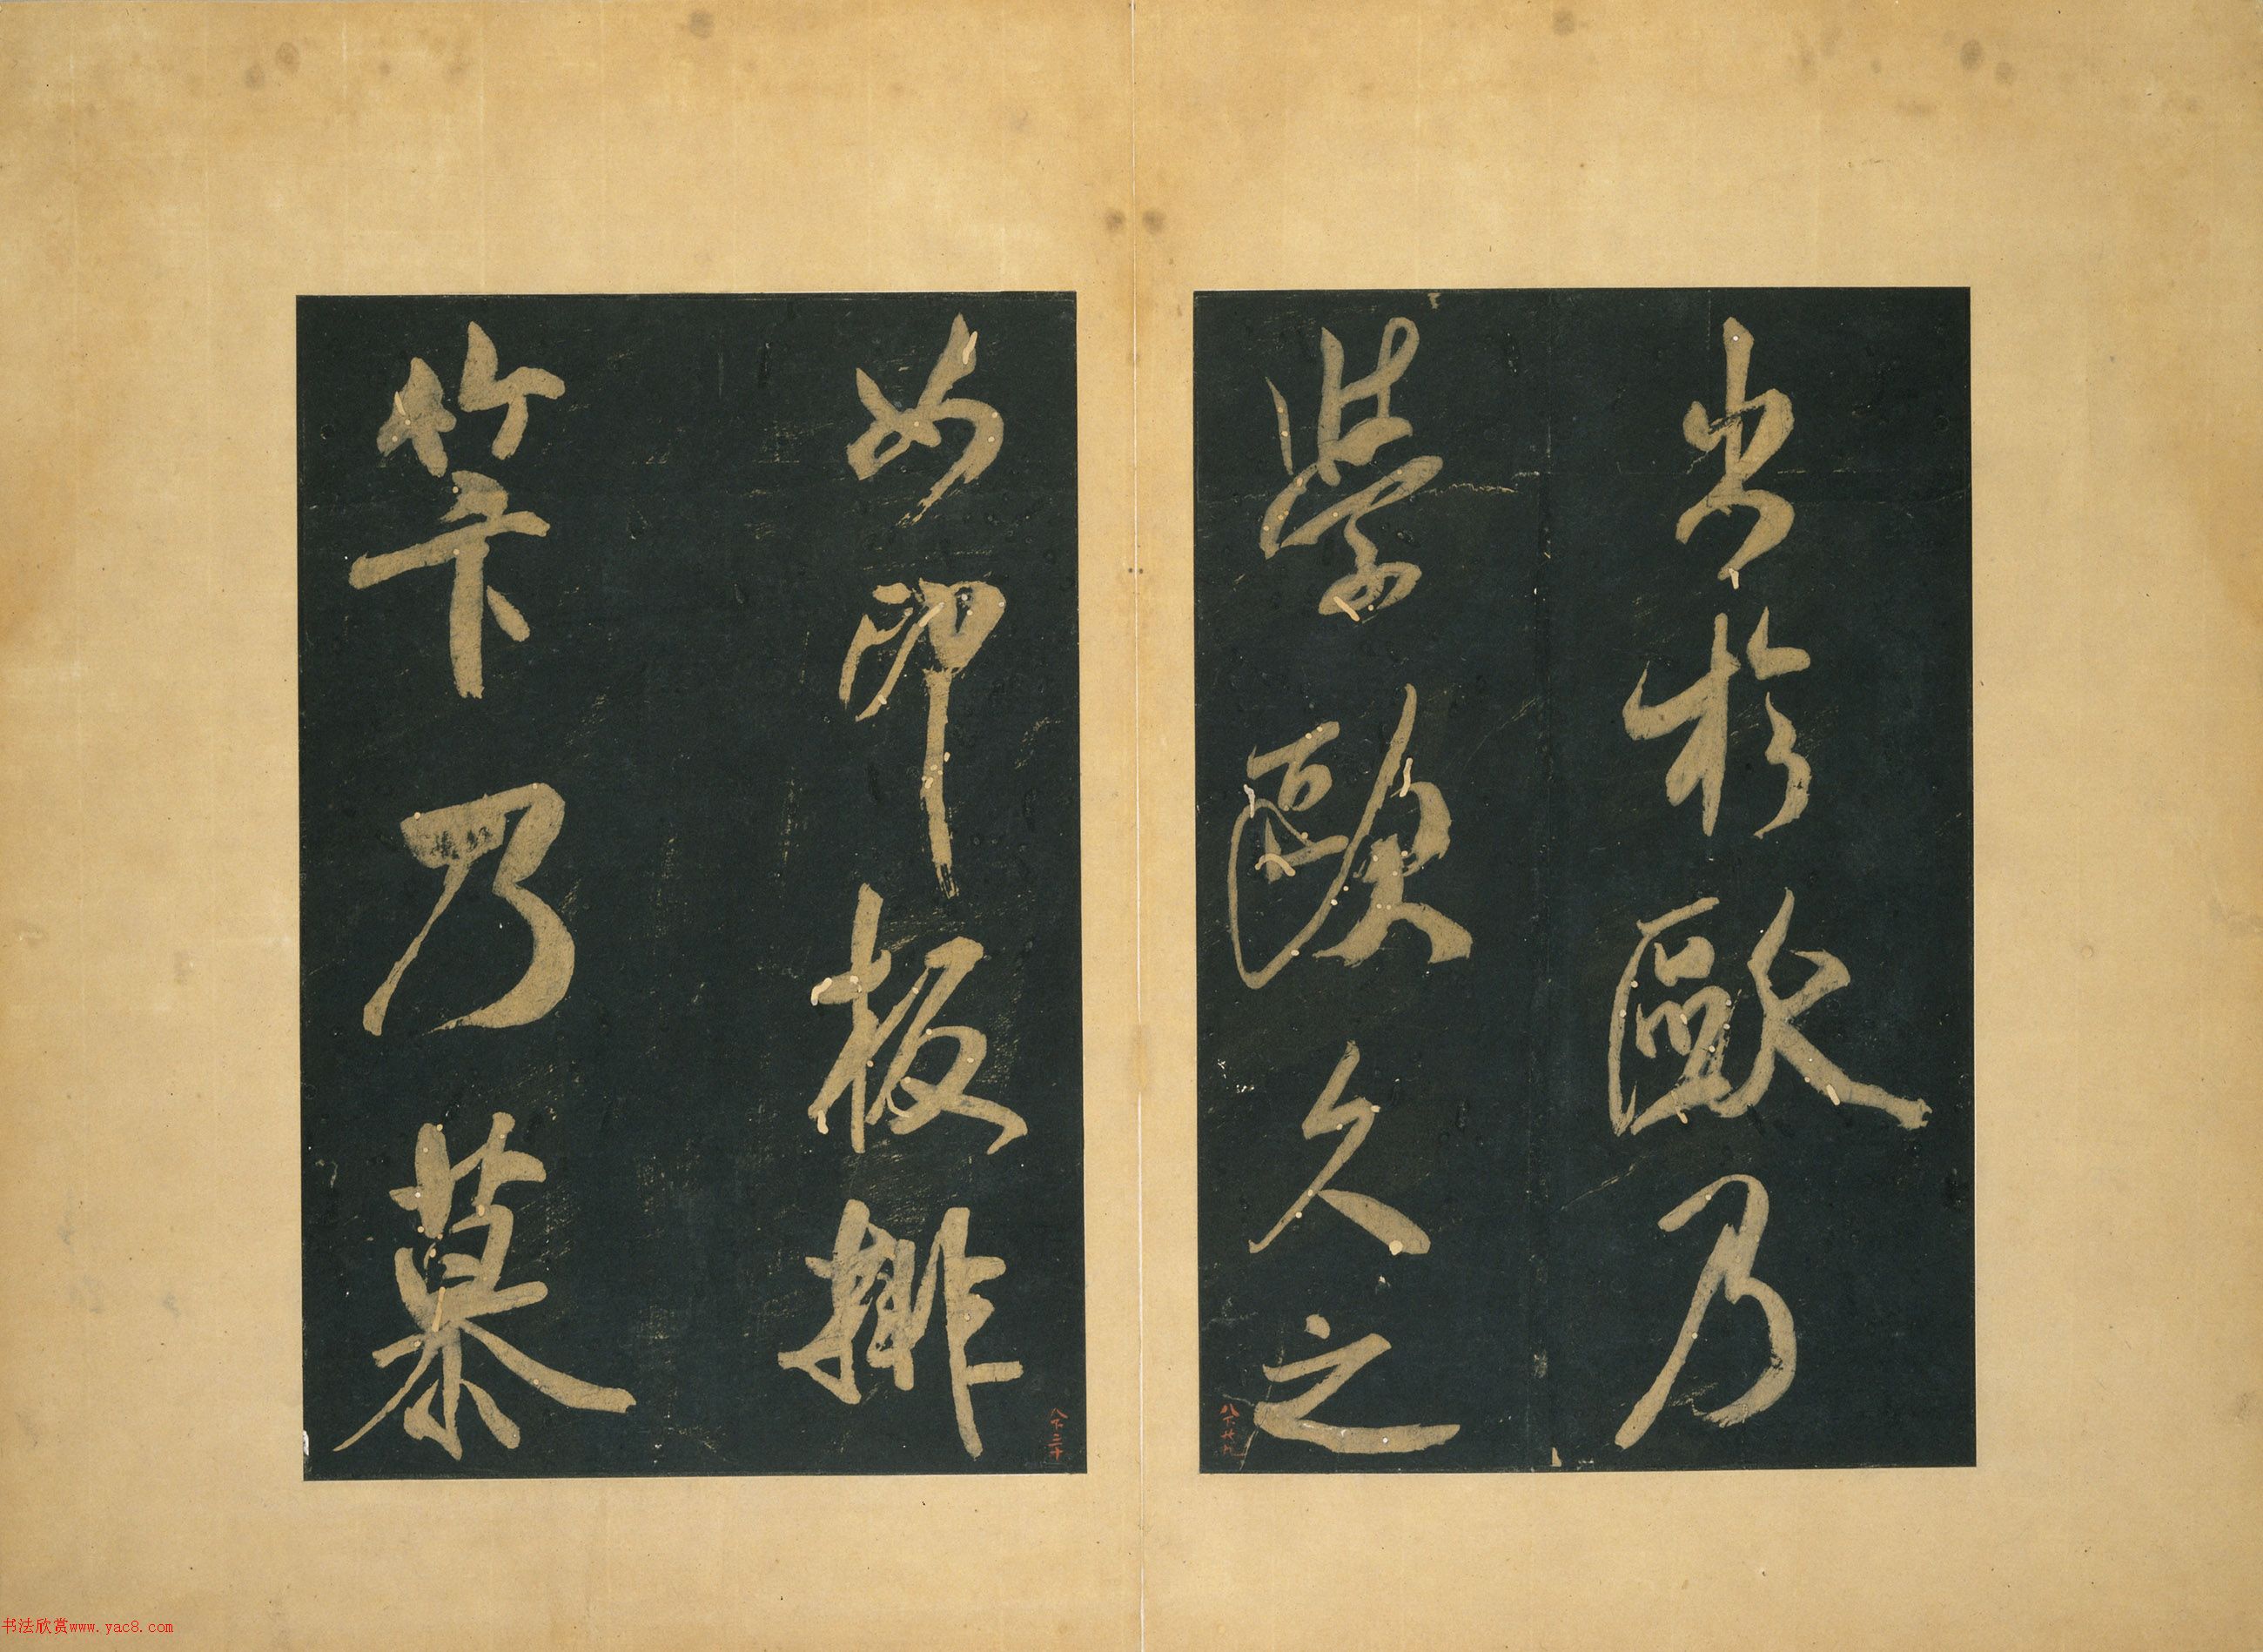 出於歐乃
學歐久之
八下廿九
如印板排
笇乃慕
八下三十
书法欣赏www.yac8.com